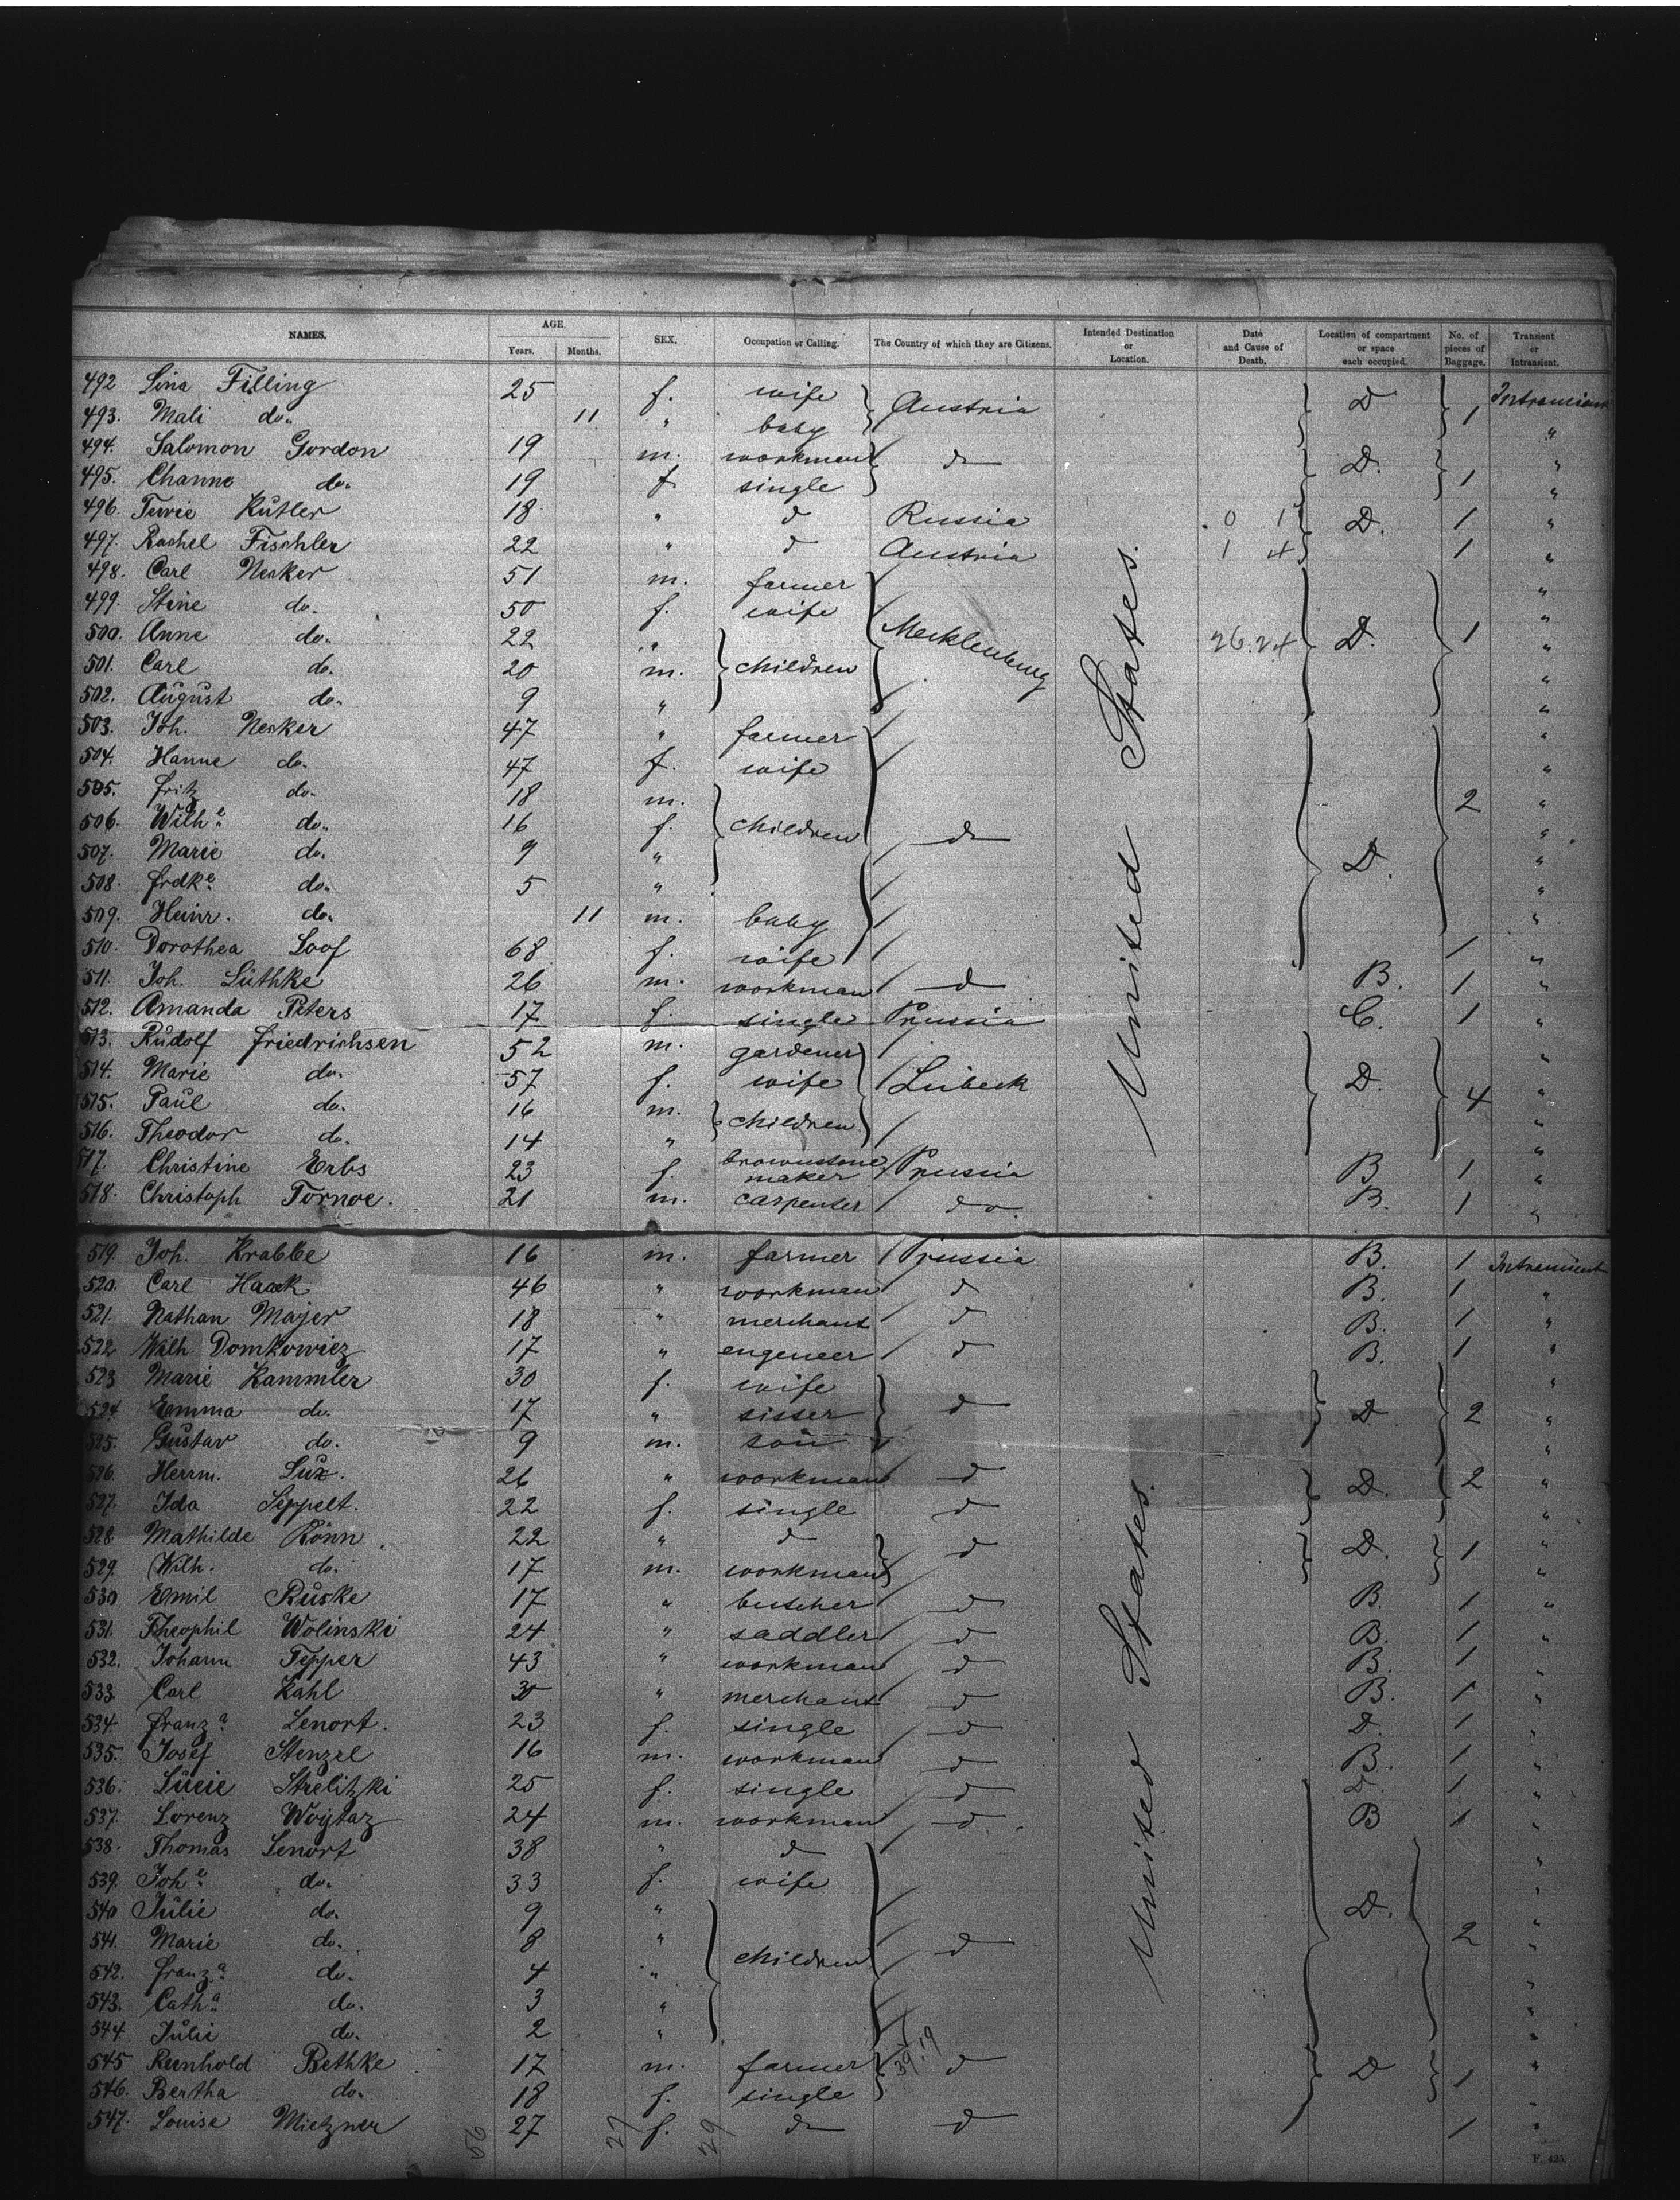 NAMES. AGE. Years. Months. SEX. Occupation or Calling. The Country of which they are Citizens. Intended Destination or Location. Date and Cause of Death. Location of compartment or space each occupied. No. of pieces of Baggage. Transient or Intransient.
492 Lina Filling 25 f. wife Austria D 1 Intransient
493. Mali do. 11 " baby "
494. Salomon Gordon 19 m. workman do D. 1 "
495. Channe do. 19 f. single "
496. Kutler 18 " d Russia . 0 1 D. 1 "
497. Rachel Fischler 22 " d Austria 1 4 1 "
498. Carl Neker 51 m. farmer Mecklenburg D. 1 "
499. Stine do. 50 f. wife "
500. Anne do. 22 " children 26.24 "
501. Carl do. 20 m. "
502. August do. 9 " "
503. Joh. Neker 47 " farmer do D. 2 "
504. Hanne do. 47 f. wife "
505. Fritz do. 18 m. children "
506. Wilhe. do. 16 f. "
507. Marie do. 9 " "
508. Frdke. do. 5 " "
509. Heinr. do. 11 m. baby "
510. Dorothea Loof 68 f. wife 1 "
511. Joh. Lüthke 26 m. workman d B. 1 "
512. Amanda Peters 17 f. single Prussia C. 1 "
513. Rudolf Friedrichsen 52 m. gardener Lübeck D. 4 "
514. Marie do. 57 f. wife "
515. Paul do. 16 m. children "
516. Theodor do. 14 " "
517. Christine Erbs 23 f. maker Prussia B 1 "
518. Christoph Tornoe. 21 m. carpenter do. B. 1 "
United States.
519. Joh. Krabbe 16 m. farmer Prussia B. 1 Intransient
520. Carl Haack 46 " workman d B. 1 "
521. Nathan Majer 18 " merchant d B. 1 "
522 Wilh Domkowicz 17 " engeneer d B. 1 "
523 Marie Kammler 30 f. wife d D 2 "
524 Emma do. 17 " sisser "
525. Gustav do. 9 m. son "
526. Herrm. Lux. 26 " workman d D. 2 "
527. Ida Seppelt. 22 f. single d "
528. Mathilde Rönn 22 " d d D. 1 "
529. Wilh. do. 17 m. workman "
530 Emil Ruske 17 " butcher d B. 1 "
531. Theophil Wolinski 24 " saddler d B. 1 "
532. Johann Tepper 43 " workman d B. 1 "
533. Carl Kahl 30 " merchant d B. 1 "
534. Franza. Lenort. 23 f. single d D. 1 "
535. Josef Stenzel 16 m. workman d B. 1 "
536. Lucie Strelitzki 25 f. single d D. 1 "
537. Lorenz Woytaz 24 m. workman d B 1 "
538. Thomas Lenort 38 " d d D. 2 "
539. Johe. do. 33 f. wife "
540 Julie do. 9 " children "
541. Marie do. 8 " "
542. Franza. do. 4 " "
543. Catha. do. 3 " "
544. Julie do. 2 " "
545 Reinhold Bethke 17 m. farmer d D 1 "
546. Bertha do. 18 f. single "
547. Louise Mietzner 27 f. do d 1 "
United States.
F. 425.